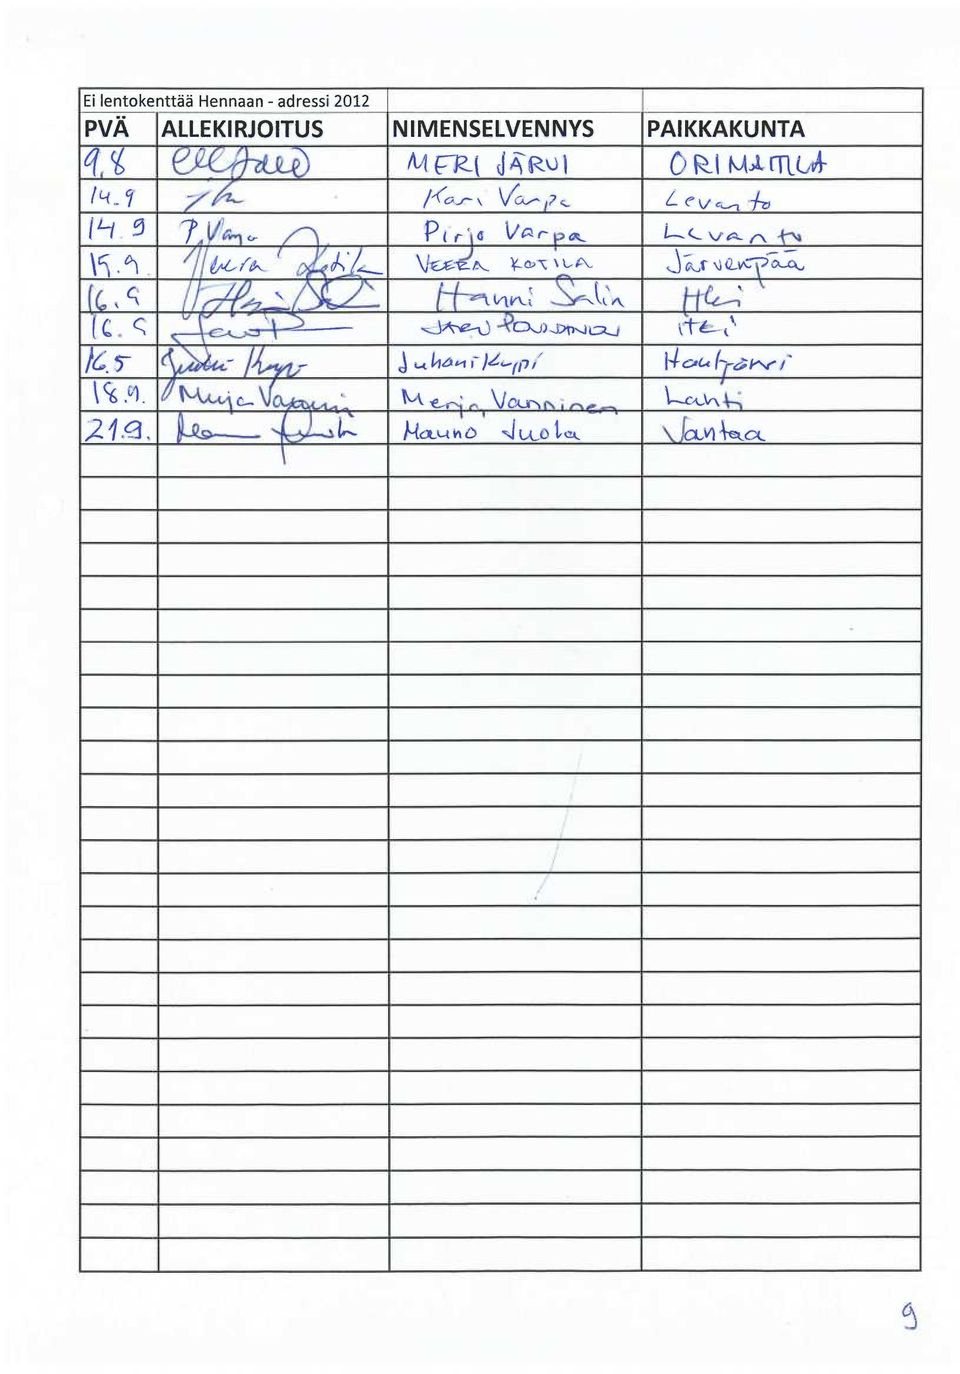 Ei lentokenttää Hennaan - adressi 2012
PVÄ ALLEKIRJOITUS NIMENSELVENNYS PAIKKAKUNTA
9.8 MERI JÄRVI ORIMATTILA
14.9 Kari Varpa Levanto
14.9 P. Varpa Pirjo Varpa Levanto
15.9. Veera Kotila VEERA KOTILA Järvenpää
16.9 Hanni Salin Hki
16.9
16.5 Juhani Kuppi
18.9. Merja Vanninen Merja Vanninen Lahti
21.9. Mauno Juola Vantaa
9